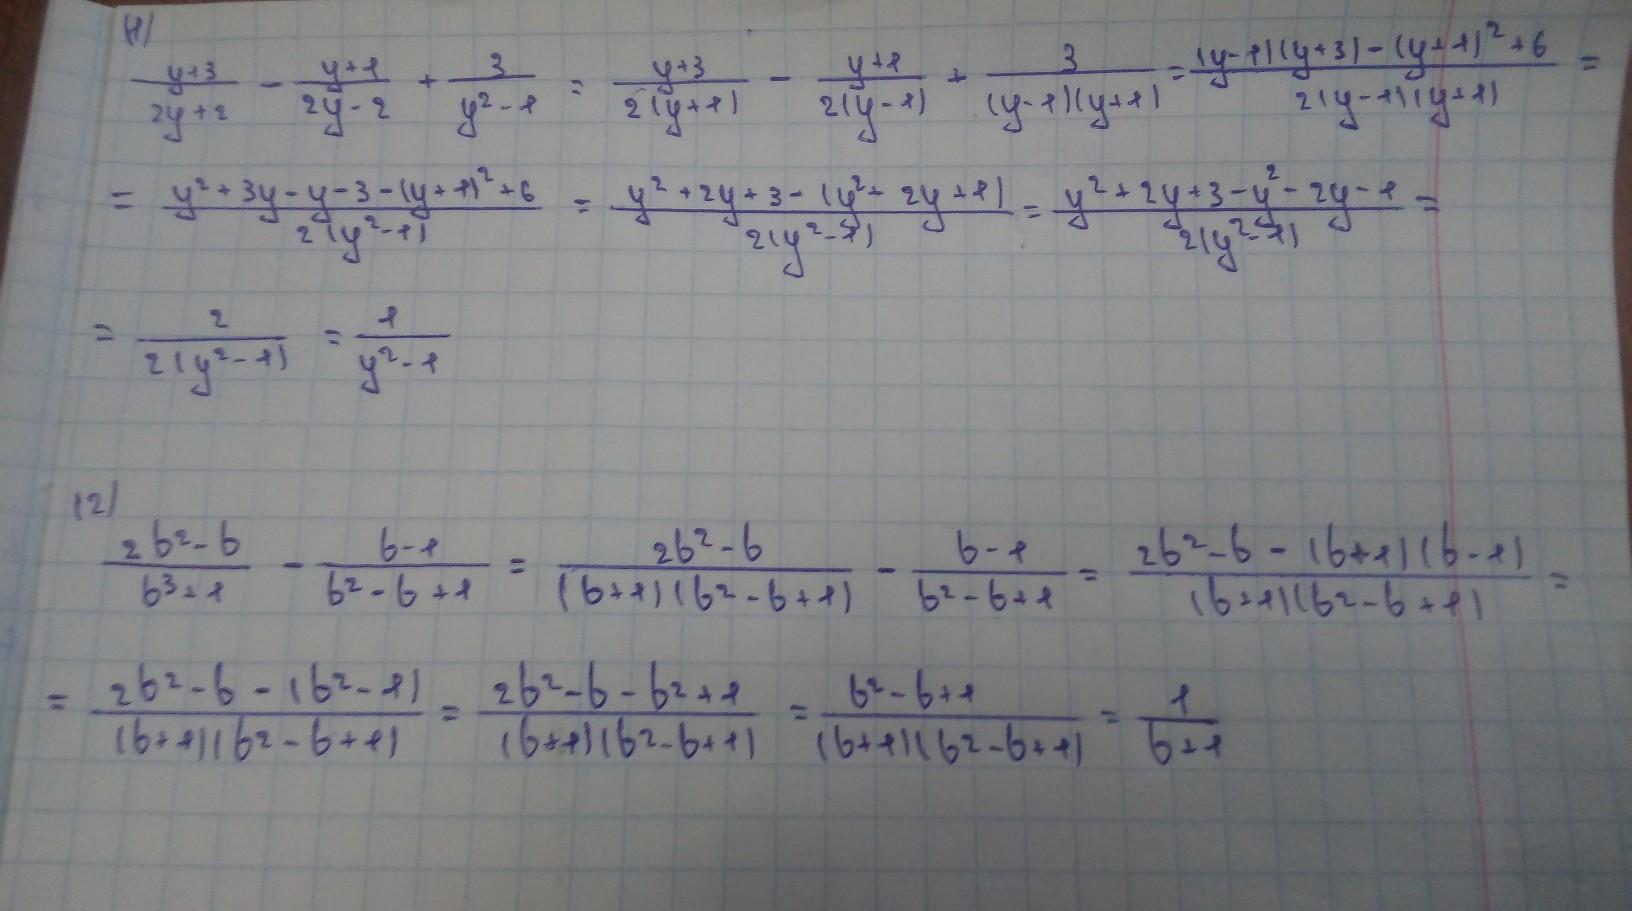 11)
\frac{y+3}{2y+2} - \frac{y+1}{2y-2} + \frac{3}{y^2-1} = \frac{y+3}{2(y+1)} - \frac{y+1}{2(y-1)} + \frac{3}{(y-1)(y+1)} = \frac{(y-1)(y+3)-(y+1)^2+6}{2(y-1)(y+1)} =
= \frac{y^2+3y-y-3-(y+1)^2+6}{2(y^2-1)} = \frac{y^2+2y+3-(y^2+2y+1)}{2(y^2-1)} = \frac{y^2+2y+3-y^2-2y-1}{2(y^2-1)} =
= \frac{2}{2(y^2-1)} = \frac{1}{y^2-1}
12)
\frac{2b^2-b}{b^3+1} - \frac{b-1}{b^2-b+1} = \frac{2b^2-b}{(b+1)(b^2-b+1)} - \frac{b-1}{b^2-b+1} = \frac{2b^2-b-(b+1)(b-1)}{(b+1)(b^2-b+1)} =
= \frac{2b^2-b-(b^2-1)}{(b+1)(b^2-b+1)} = \frac{2b^2-b-b^2+1}{(b+1)(b^2-b+1)} = \frac{b^2-b+1}{(b+1)(b^2-b+1)} = \frac{1}{b+1}